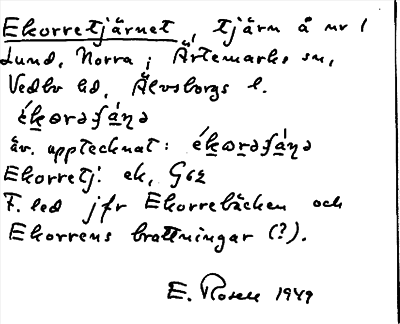 Ekorretjärnet, tjärn å nr 1
Lund, Norra i Ärtemarks sn,
Vedbo hd, Älvsborgs l.
ék̲ꞷrəʃa̲ŋə
äv. upptecknat: ék̲ꞷrəʃa̲ŋə
Ekorretj: ek, G62
F. led jfr Ekorrebäcken och
Ekorrens brattningar (?).
E. Rosell 1949